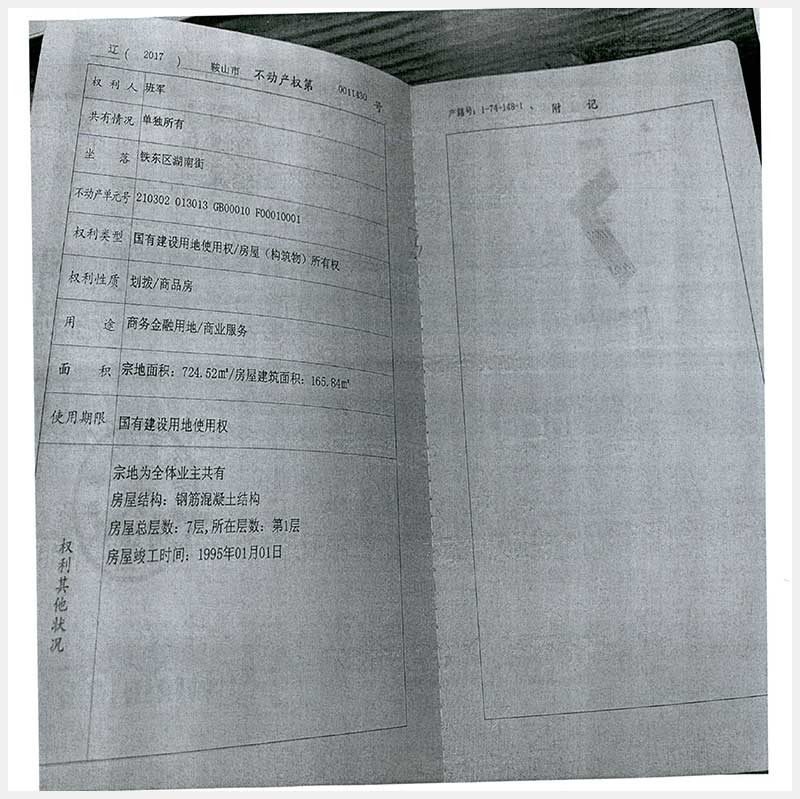 辽( 2017 ) 鞍山市 不动产权第 0011430 号
权利人 班军
共有情况 单独所有
坐落 铁东区湖南街
不动产单元号 210302 013013 GB00010 F00010001
权利类型 国有建设用地使用权/房屋(构筑物)所有权
权利性质 划拨/商品房
用途 商务金融用地/商业服务
面积 宗地面积:724.52㎡/房屋建筑面积:165.84㎡
使用期限 国有建设用地使用权
权利其他状况
宗地为全体业主共有
房屋结构:钢筋混凝土结构
房屋总层数:7层,所在层数:第1层
房屋竣工时间:1995年01月01日
产籍号:1-74-148-1、 附 记